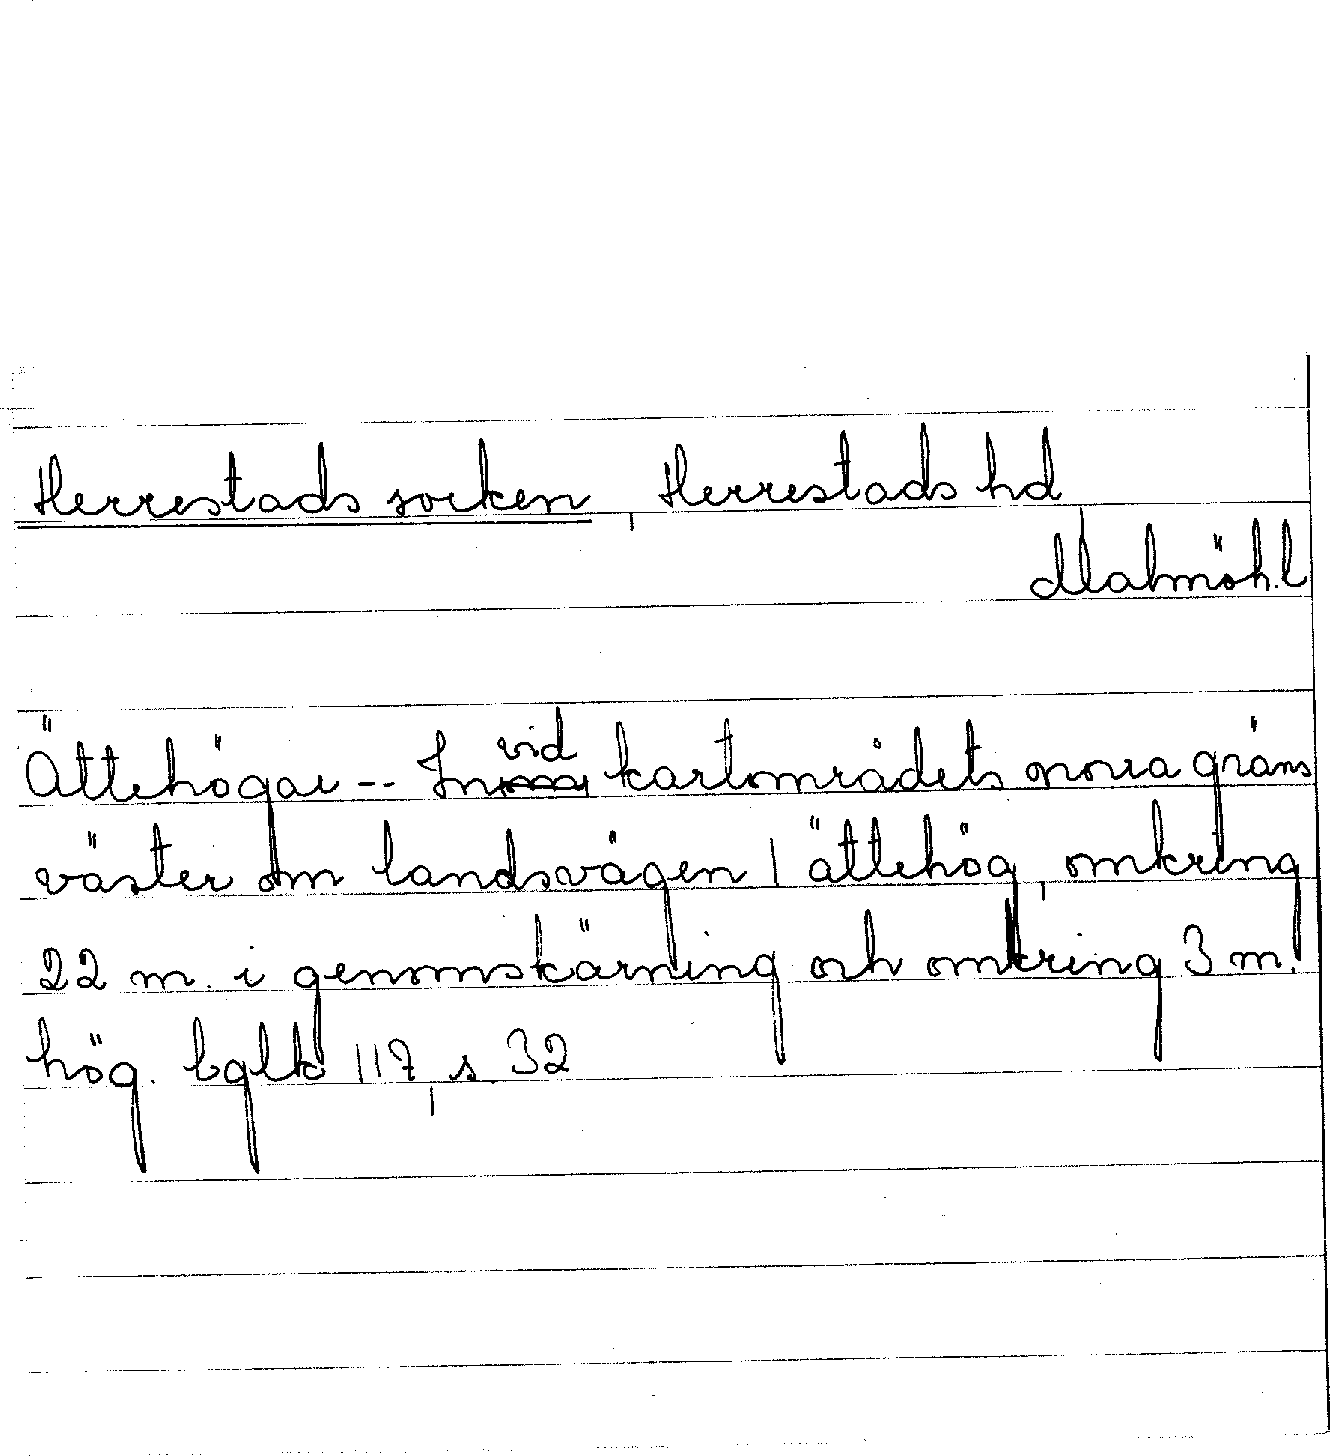 Herrestads socken, Herrestads hd
Malmöh.l
Ättehögar -- Invid kartområdets norra gräns
väster om landsvägen 1 ättehög, omkring
22 m. i genomskärning och omkring 3 m.
hög. bglk 117, s. 32